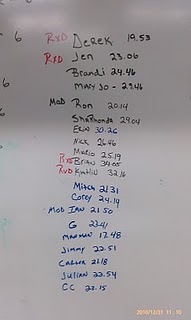 6
RXD DEREK 19.53
RXD Jen 23.06
Brandi 24.46
MARY JO - 29.46
MOD Ron 20.14
SHARHONDA 29.04
ERIN 30.26
Nick 26.46
Mario 25.19
RXD BRIAN 34.05
RXD Kyatlin 32.16
Mitch 21.31
Corey 24.14
MOD IAN 21.50
G 23.41
MADMAN 17.48
Jimmy 22.51
CARTER 21.18
JULIAN 22.54
CC 22.15
2010/12/31 11:10